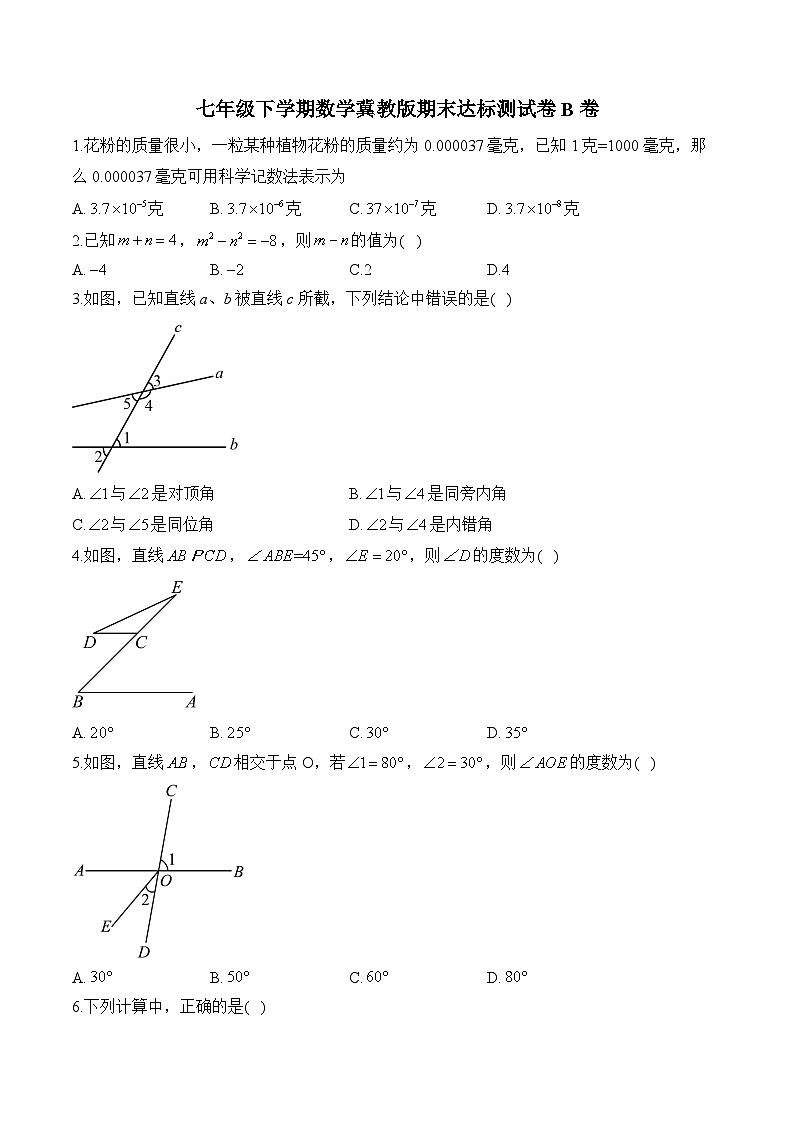 七年级下学期数学冀教版期末达标测试卷 B 卷
1.花粉的质量很小，一粒某种植物花粉的质量约为 0.000037 毫克，已知 1 克=1000 毫克，那
么 0.000037 毫克可用科学记数法表示为
A. 3.7×10⁻⁵克 B. 3.7×10⁻⁶克 C. 37×10⁻⁷克 D. 3.7×10⁻⁸克
2.已知 m+n=4，m²−n²=−8，则 m−n 的值为( )
A. −4 B. −2 C.2 D.4
3.如图，已知直线 a、b 被直线 c 所截，下列结论中错误的是( )
c
3
a
5 4
1
b
2
A. ∠1与∠2是对顶角 B. ∠1与∠4是同旁内角
C. ∠2与∠5是同位角 D. ∠2与∠4是内错角
4.如图，直线 AB∥CD，∠ABE=45°，∠E=20°，则∠D的度数为( )
E
D C
B A
A. 20° B. 25° C. 30° D. 35°
5.如图，直线 AB，CD 相交于点 O，若∠1=80°，∠2=30°，则∠AOE的度数为( )
C
1
A O B
2
E
D
A. 30° B. 50° C. 60° D. 80°
6.下列计算中，正确的是( )